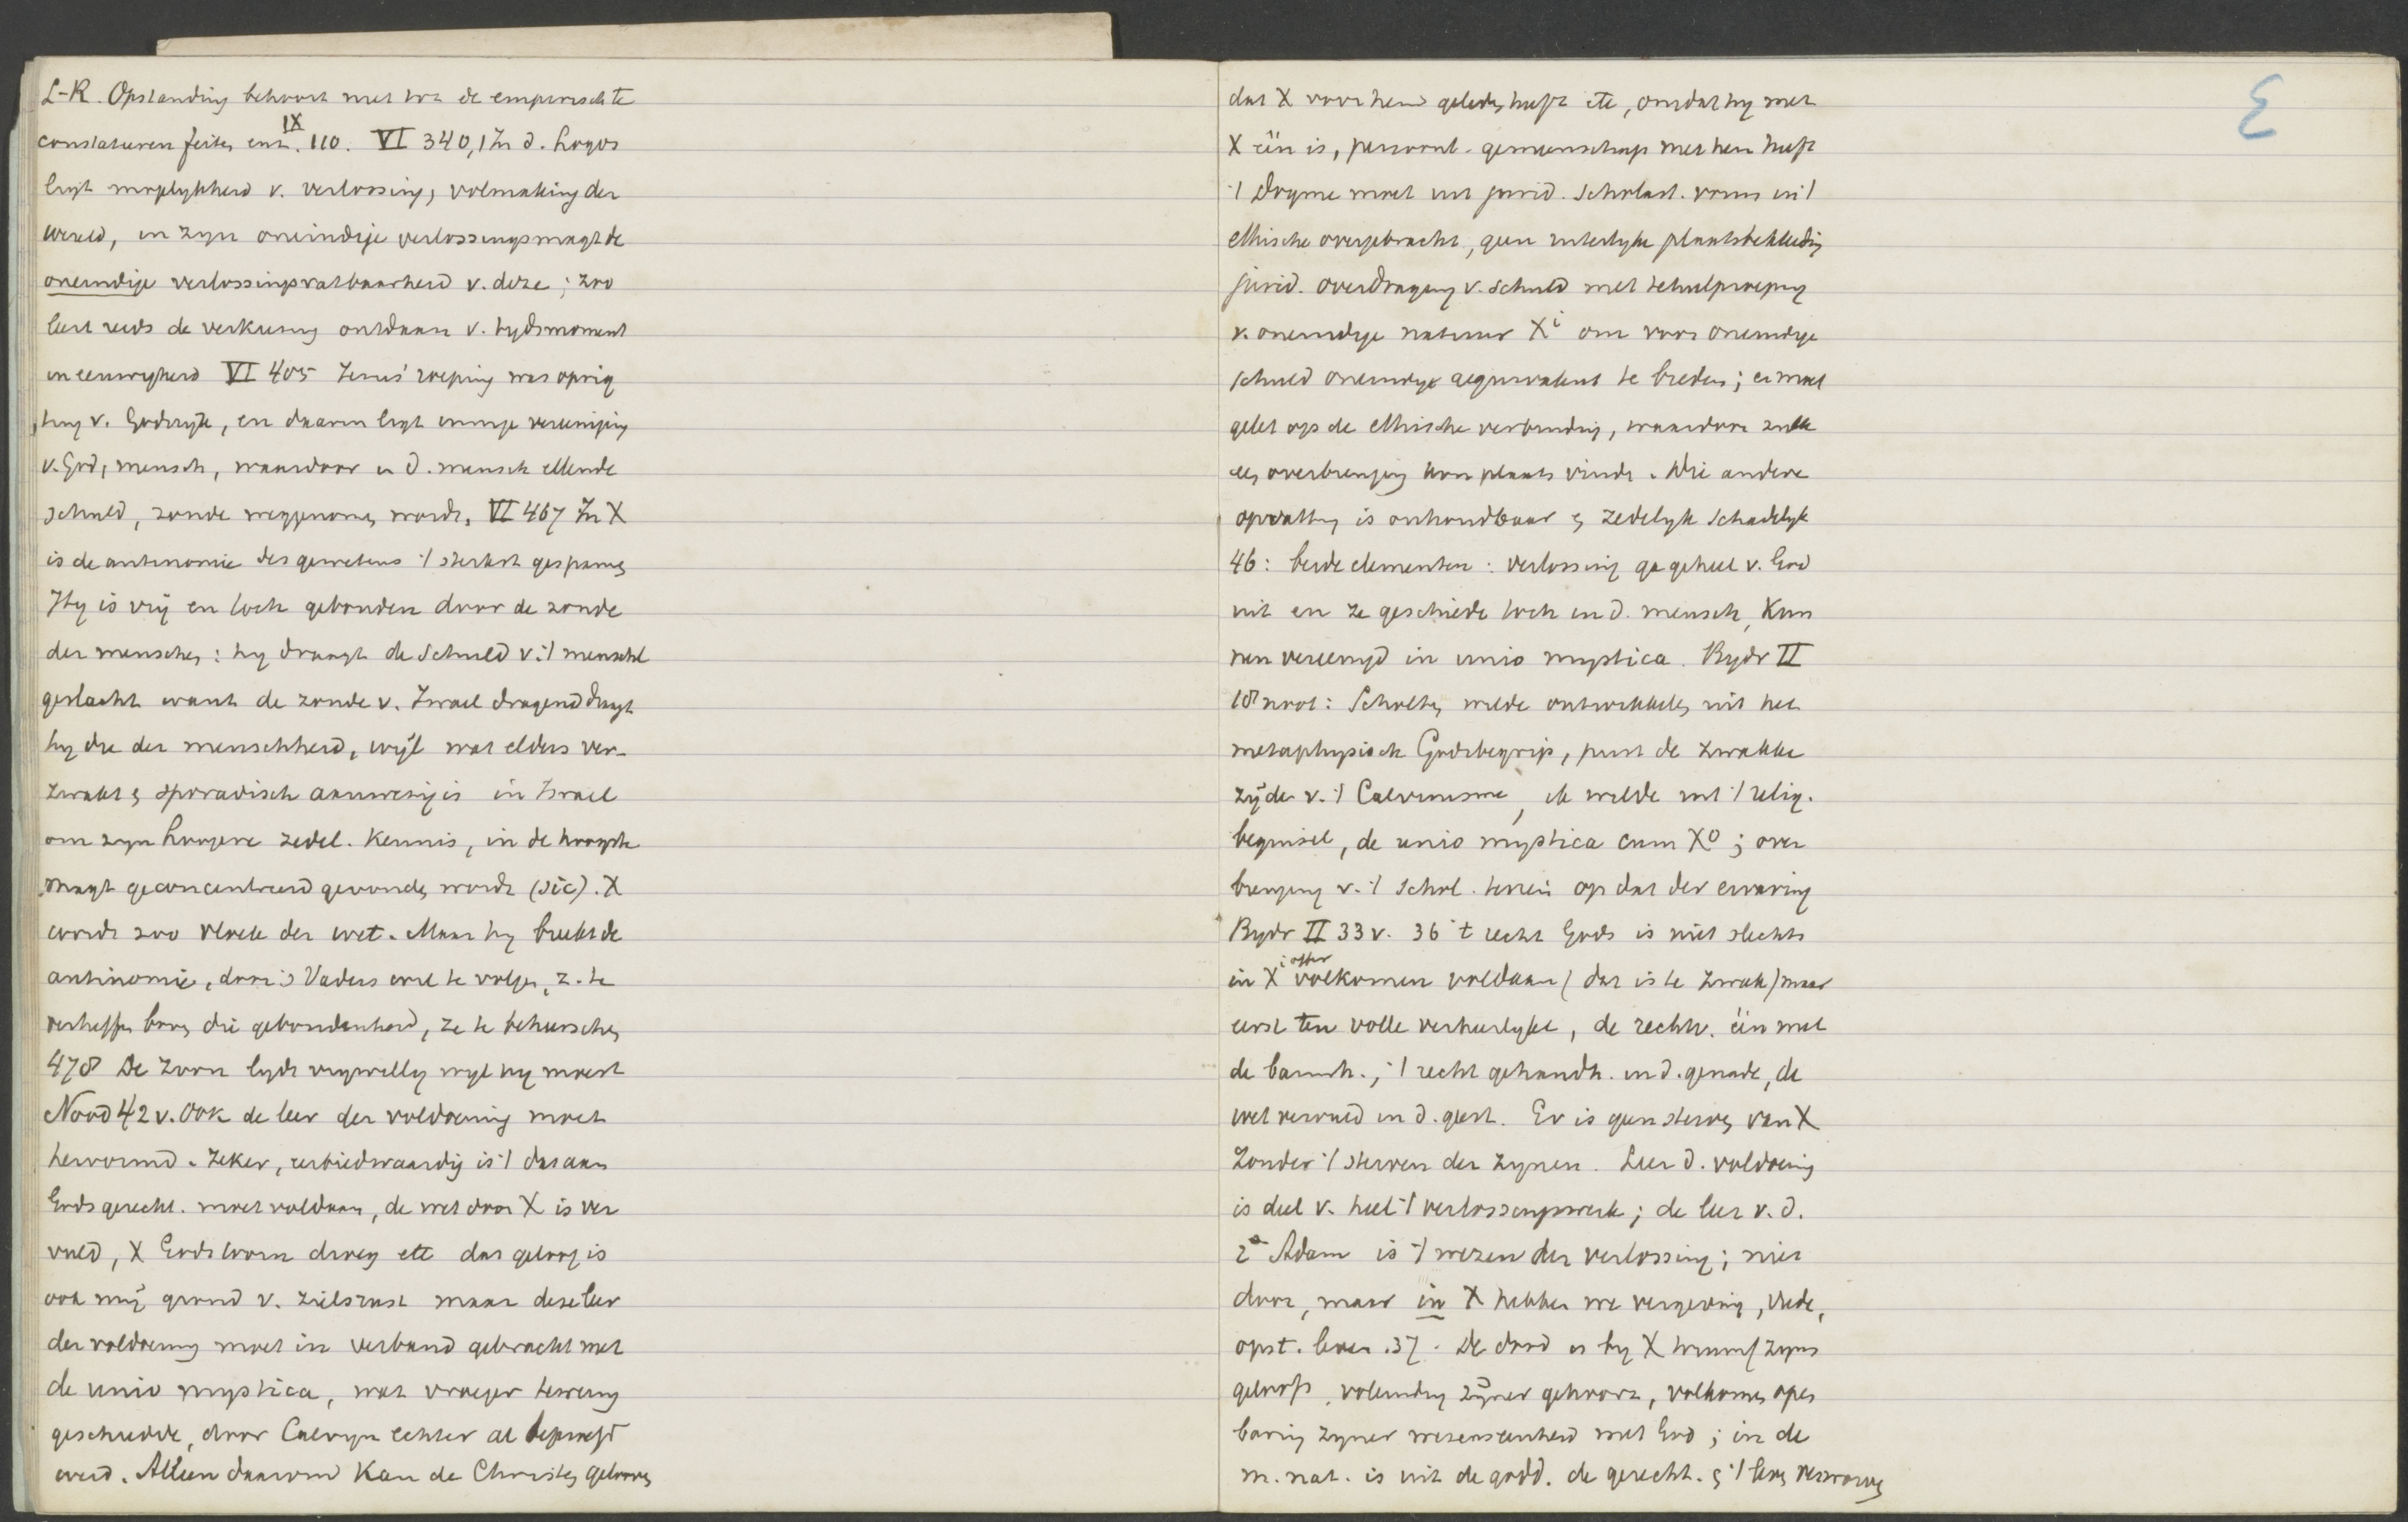 L-R. Opstanding behoort niet tot de empirisch te
constateeren feiten enz. IX 110. VI 340, 1 In d. Logos
ligt mogelykheid v. verlossing, volmaking der
wereld, in zyn oneindige verlossingsmagt de
oneindige verlossingsvatbaarheid v. deze; zoo
leert reeds de verkiezing ontdaan v. tydsmoment
in eeuwigheid VI 405 Jezus' roeping was oprig
ting v. Godsryk, en daarin ligt innige vereeniging
v. God, mensch, waardoor in d. mensch ellende
schuld, zonde weggenomen wordt. VI 467 In X
is de antinomie des gewetens 't sterkst gespannen
Hy is vrij en toch gebonden door de zonde
der menschen: hy draagt de schuld v. 't menschel
geslacht want de zonde v. Israel dragend draagt
hy die der menschheid, wijl wat elders ver-
zwakt & sporadisch aanwezig is in Israel
om zyn hoogere zedel. kennis, in de hoogste
magt geconcentreerd gevonden wordt (sic). X
wordt zoo vloek der wet. Maar hy breekt de
antinomie, door 's Vaders wil te volgen, z. te
verheffen boven die gebondenheid, ze te beheerschen
478 De toorn lydt vrywillig wyl hy moest
Nood 42 v. Ook de leer der voldoening moet
hervormd. Zeker, eerbiedwaardig is 't dat aan
Gods gerecht. moet voldaan, de wet door X is ver
vuld, X Gods toorn droeg etc dat geloof is
ook mij grond v. zielsrust maar deze leer
der voldoening moet in verband gebracht met
de unio mystica, wat vroeger te weinig
geschiedde, door Calvyn echter al beproefd
werd. Alleen daarom kan de Christen gelooven
dat X voor hem geleden heeft etc, omdat hy met
X één is, persoonl. gemeenschap met hem heeft
't Dogme moet uit jurid. scholast. vorm in 't
ethische overgebracht, geen uiterlyke plaatsbekleeding
jurid. overdraging v. schuld met tehulproeping
v. oneindige natuur Xi om voor oneindige
schuld oneindige aequivalent te bieden; er moet
gelet op de ethische verbinding, waardoor zulk
een overbrenging kon plaats vinden. Die andere
opvatting is onhoudbaar & zedelyk schadelyk
46: beide elementen: verlossing ga geheel v. God
uit en ze geschiede toch in d. mensch, kun
nen vereenigd in unio mystica. Bydr II
18 noot: Scholten wilde ontwikkelen uit het
metaphysisch Godsbegrip, juist de zwakke
zijde v. 't Calvinisme, ik wilde uit 't relig.
beginsel, de unio mystica cum Xo; over
brenging v. 't schol. terrein op dat der ervaring
Bydr II 33 v. 36 't recht Gods is niet slechts
in Xi offer volkomen voldaan (dat is te zwak) maar
eerst ten volle verheerlykt, de rechtv. één met
de barmh., 't recht gehandh. in d. genade, de
wet vervuld in d. geest. Er is geen sterven van X
zonder 't sterven der zynen. Leer d. voldoening
is deel v. heel 't verlossingswerk; de leer v. d.
2e Adam is 't wezen der verlossing; niet
door, maar in X hebben we vergeving, vrede,
opst. leven. 37. De dood is by X triumf zyns
geloofs, voleinding zijner gehoorz, volkomen open
baring zyner wezenseenheid met God; in de
m. nat. is uit de godd. de gerecht. & 't leven verworven